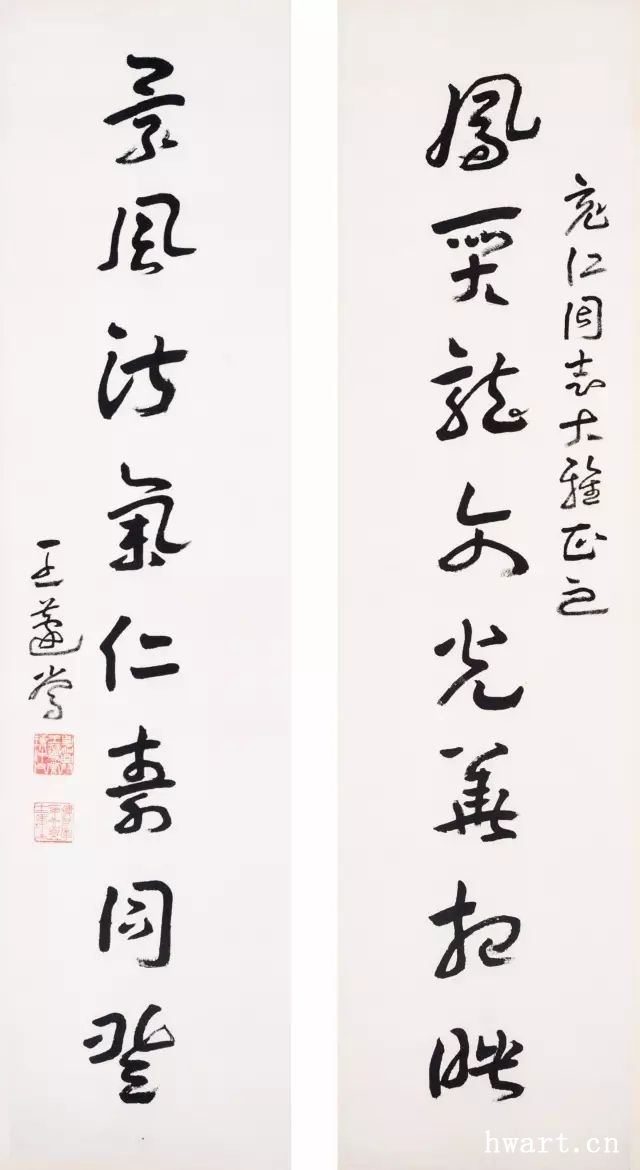 充仁同志大雅正之
鳳龍光華相映
景風淑氣仁壽同登
王蘧常
hwart.cn